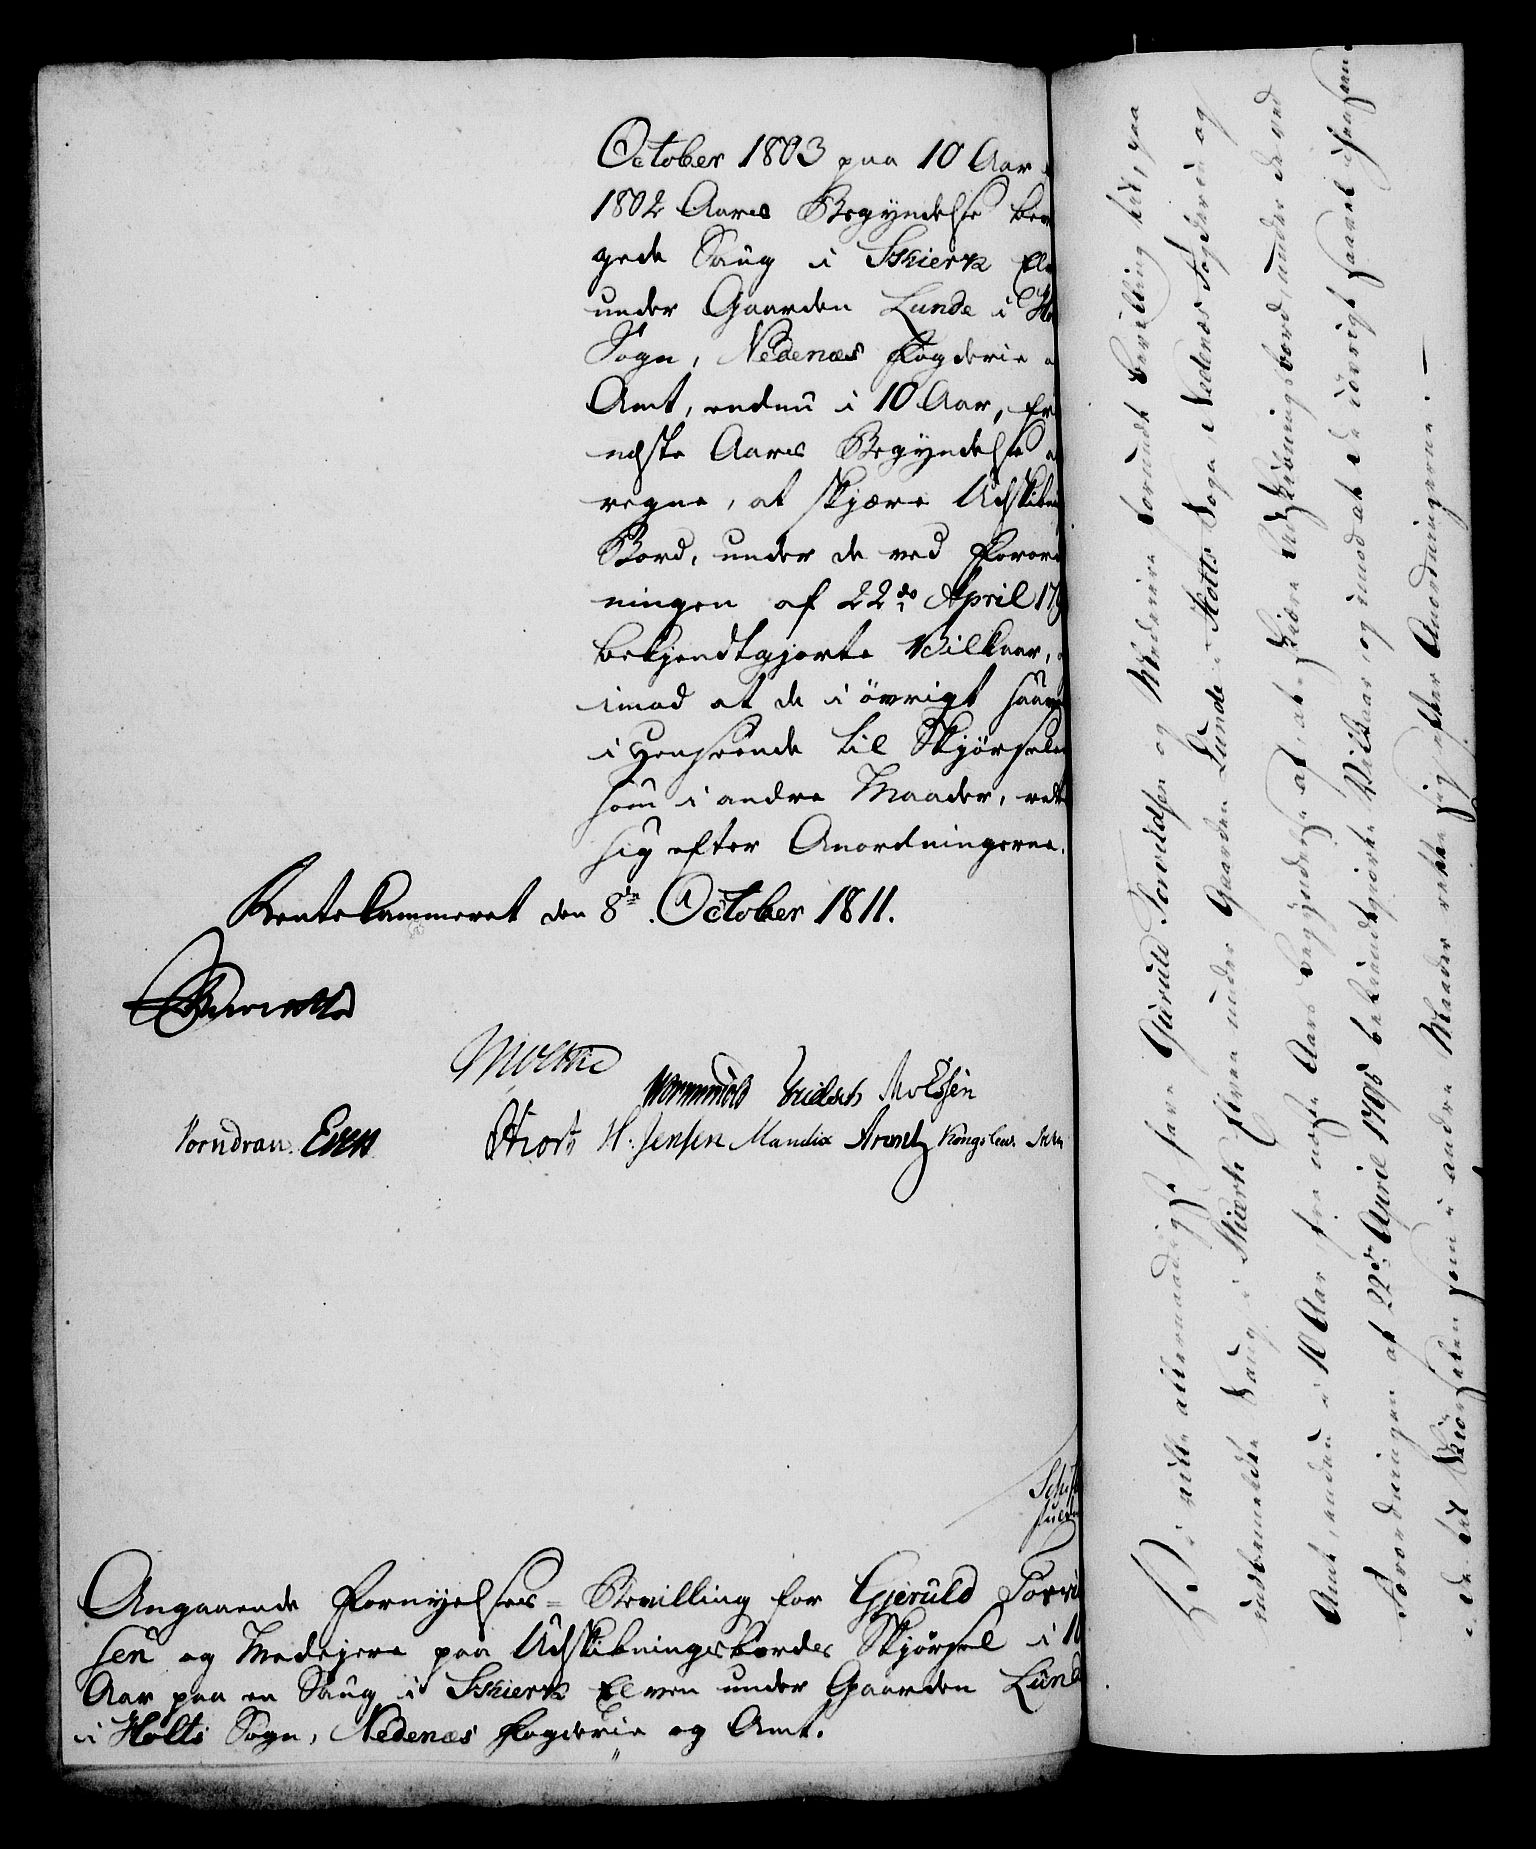 October 1803 paa 10 Aar
1802 Aars Begyndelse bev
gede Saug i Skierk Elv
under Gaarden Lunde i Ho
Sogn, Nedenæs Fogderie
Amt, endnu i 10 Aar, fra
næste Aars Begyndelse at
regne, at skjære Udskibn
Bord, under de ved Forord
ningen af 22de April 179
bekjendtgjorte Vilkaar,
imod at de i övrigt saav
i Henseende til Skjörselen
som i andre Maader, rette
sig efter Anordningerne.
Rentekammeret den 8de October 1811.
Moltke
Wormskiold Knudsen
Vorndran. Hiort H. Jensen Mandix Arentz Kongslew.
Angaaende Fornyelses-Bevilling for Gjeruld Torvi
sen og Medejere paa Udskibningsbordes Skjörsel i 10
Aar paa en Saug i Skierk Elven under Gaarden Lund
i Holts Sogn, Nedenæs Fogderie og Amt.
Vi ville allernaadigst have Gjeruld Torvildsen og Medeiere forundt Bevilling til, paa
indbemeldte Saug i Skierk Elven under Gaarden Lunde i Holts Sogn, Nedenæs Fogderie og
Amt, endnu i 10 Aar fra næste Aars Begyndelse af, at skiære Udskibningsbord, under de ved
Forordningen af 22de April 1795 bekiendtgiorte Vilkaar, og imod at de iövrigt saavel i Henseen
de til Skiörselen som i andre Maader rette sig efter Anordningerne. —